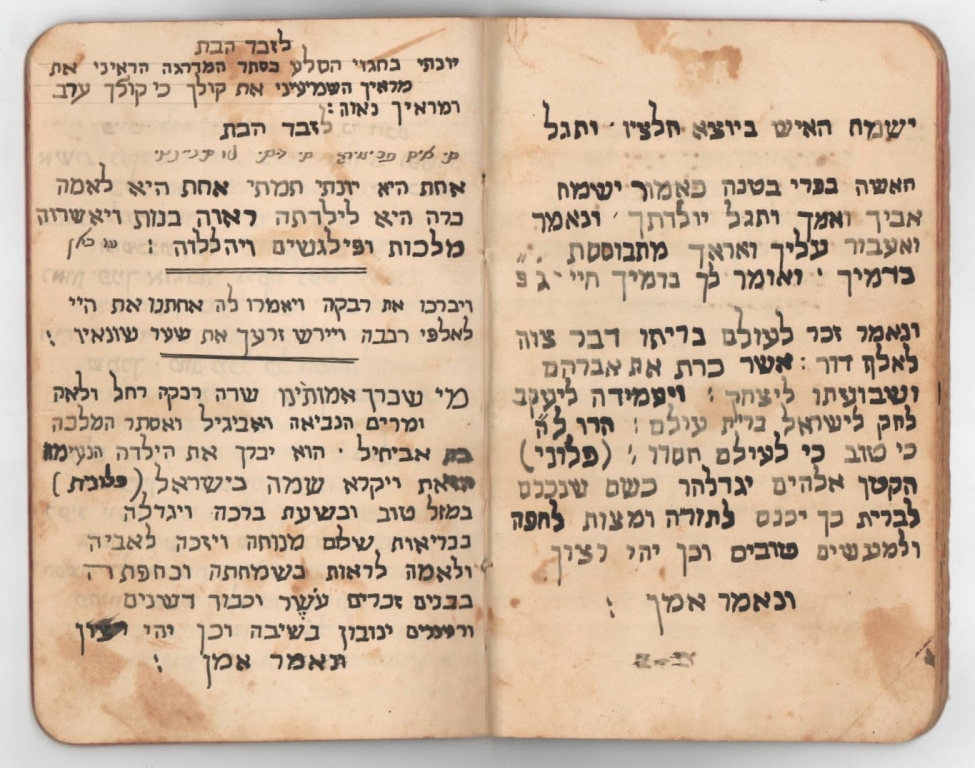 ישמח האיש ביוצא חלציו ותגל
האשה בפרי בטנה כאמור ישמח
אביך ואמך ותגל יולדתך ונאמר
ואעבור עליך ואראך מתבוססת
בדמיך ואומר לך בדמיך חיי
ונאמר זכר לעולם בריתו דבר צוה
לאלף דור : אשר כרת את אברהם
ושבועתו ליצחק : ויעמידה ליעקב
לחק לישראל ברית עולם : הודו לה
כי טוב כי לעולם חסדו : (פלוני)
הקטן אלהים יגדלהו כשם שנכנס
לברית כך יכנס לתורה ומצות לחפה
ולמעשים טובים וכן יהי רצון
ונאמר אמן :
לזבד הבת
יונתי בחגוי הסלע בסתר המדרגה הראיני את
מראיך השמיעיני את קולך כי קולך ערב
ומראיך נאוה :
לזבד הבת
אחת היא יונתי תמתי אחת היא לאמה
ברה היא לילדתה ראוה בנות ויאשרוה
מלכות ופילגשים ויהללוה : עד כאן
ויברכו את רבקה ויאמרו לה אחתנו את היי
לאלפי רבבה ויירש זרעך את שער שונאיו :
מי שברך אמותינו שרה רבקה רחל ולאה
ומרים הנביאה ואביגיל ואסתר המלכה
בת אביחיל . הוא יברך את הילדה הנעימה
הזאת ויקרא שמה בישראל (פלונית)
במזל טוב ובשעת ברכה ויגדלה
בבריאות שלום מנוחה ויזכה לאביה
ולאמה לראות בשמחתה ובחפתה
בבנים זכרים עשר וכבוד דשנים
ורעננים ינובון בשיבה וכן יהי רצון
ונאמר אמן :